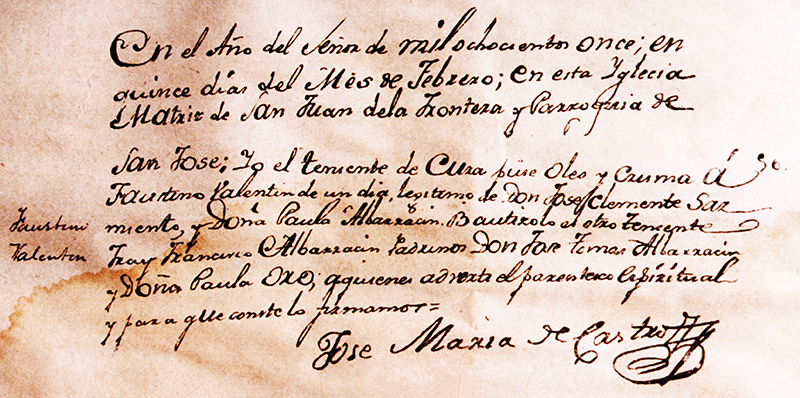 En el Año del Señor de mil ochocientos once; en
quince días del Mes de Febrero; en esta Yglecia
Matriz de San Juan dela Frontera y Parroquia de
San Jose; Yo el teniente de Cura puse Oleo y Crisma á
Faustino Valentin de un dia, legitimo de Don Jose Clemente Sar
miento, y Doña Paula Albarracin. Bautizolo el otro Teniente
Fray Francisco Albarracin Padrinos Don Jose Tomas Albarracin
y Doña Paula Oro; aquienes adverti el parentesco Espiritual
y para que conste lo firmamos=
Jose Maria de Castro
Faustino
Valentin